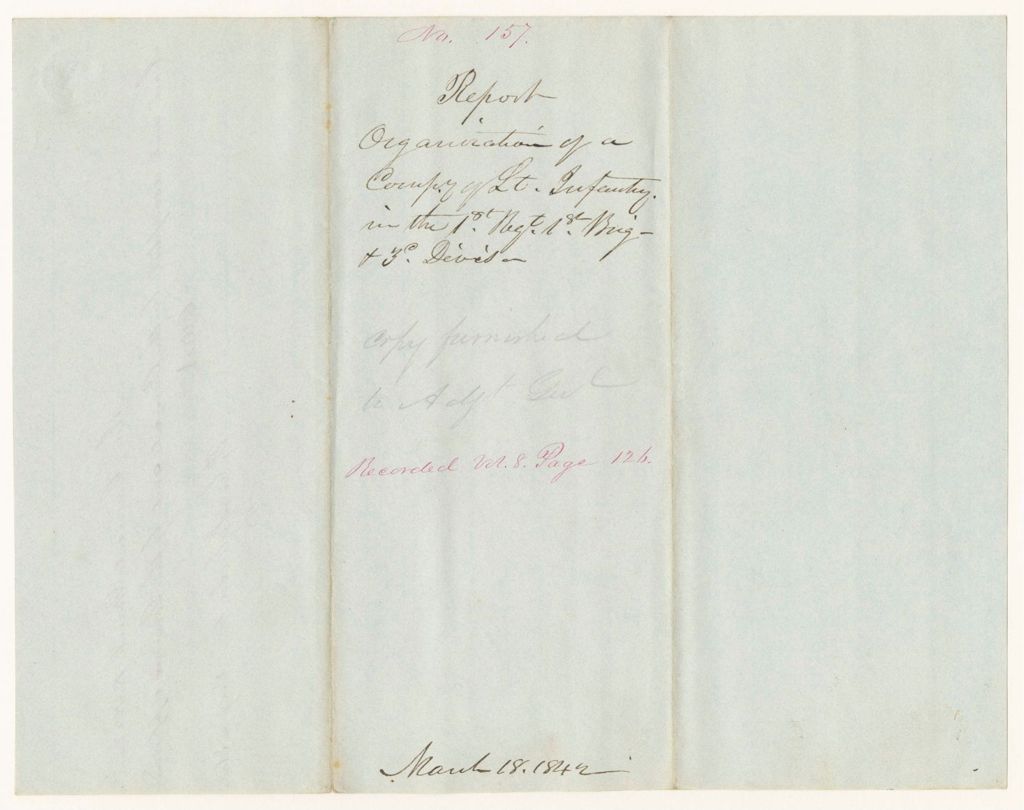 No. 157.
Report
Organization of a
Compy of Lt. Infantry.
in the 1st Regt. 1st Brig-
& 3d. Divis-
copy furnished
to Adjt Genl
Recorded Vol. 8. Page 126.
March 18. 1842